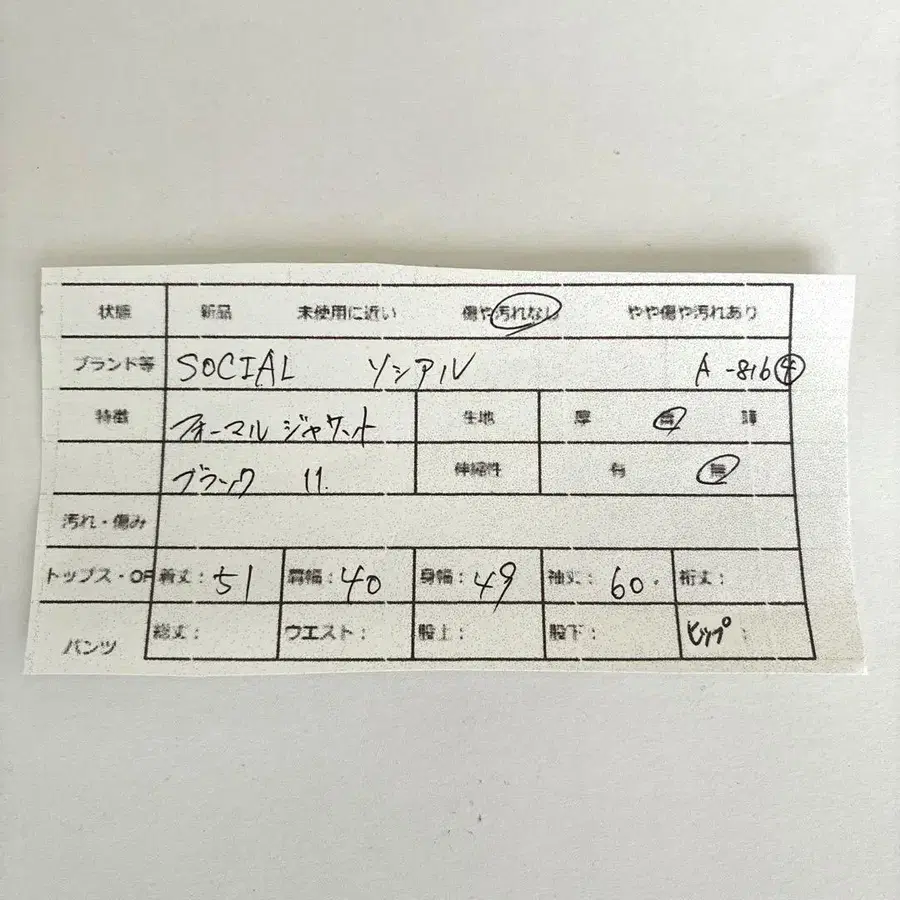 状態 新品 未使用に近い 傷や汚れなし やや傷や汚れあり
ブランド等 SOCIAL ソシアル A-816④
特徴 フォーマルジャケット 生地 厚 普 薄
ブラック 11. 伸縮性 有 無
汚れ・傷み
トップス・OP 着丈:51 肩幅:40 身幅:49 袖丈:60. 裄丈:
パンツ 総丈: ウエスト: 股上: 股下: ヒップ: